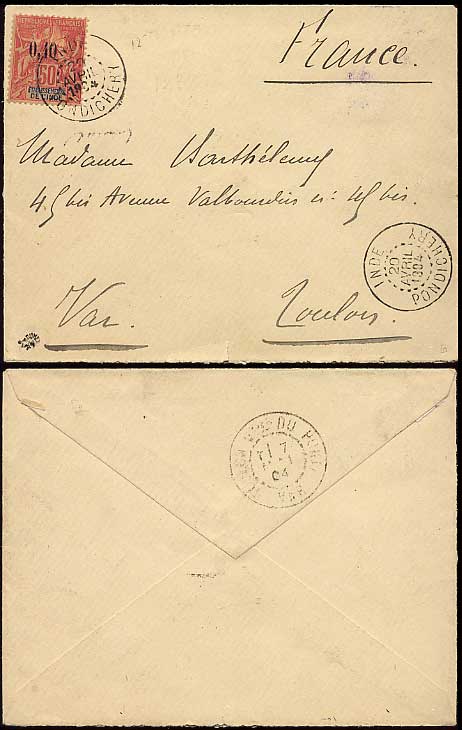 RÉPUBLIQUE FRANÇAISE
0,40
50
ÉTABLISSEMENTS
DE L'INDE
INDE
20
AVRIL
1904
PONDICHERY
France.
Madame Barthélemy
45 bis Avenue Valbourdin n: 45 bis.
INDE
20
AVRIL
1904
PONDICHERY
Var. Toulon.
TOULON DU PORT
17
04
VAR